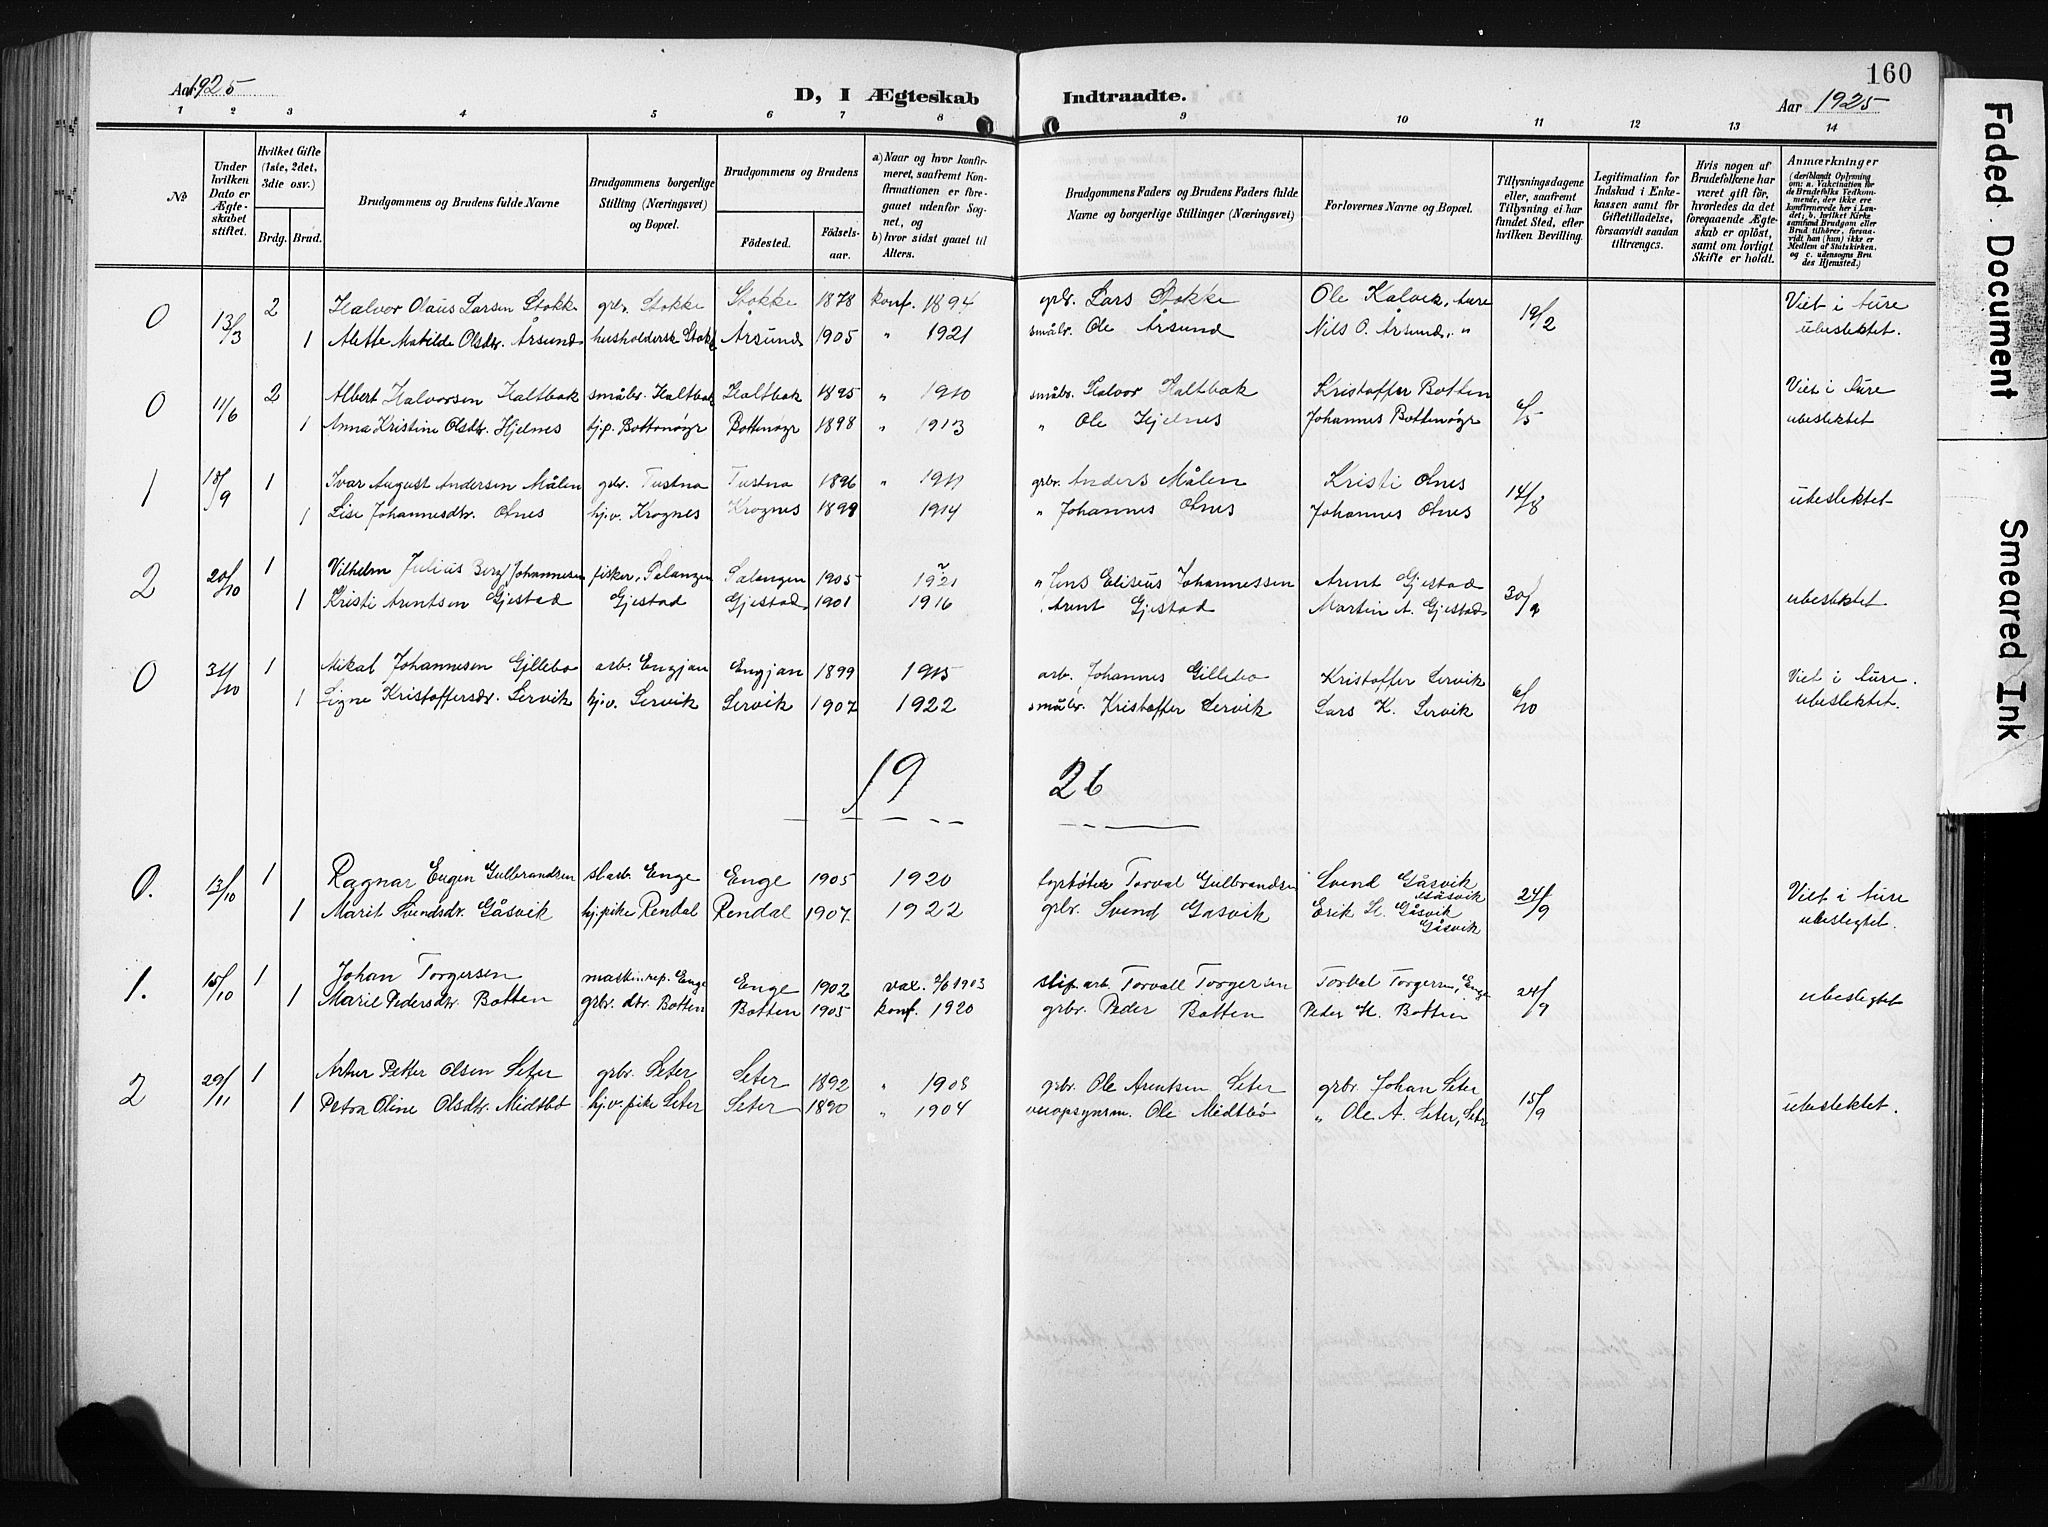 160
Aar 1925
D, I Ægteskab Indtraadte.
Aar 1925
1 2 3 4 5 6 7 8 9 10 11 12 13 14
№
Under hvilken Dato er Ægteskabet stiftet.
Hvilket Gifte (1ste, 2det, 3die osv.)
Brdg. Brud.
Brudgommens og Brudens fulde Navne
Brudgommens borgerlige Stilling (Næringsvei) og Bopæl.
Brudgommens og Brudens
Fødested. Fødselsaar.
a) Naar og hvor konfirmeret, saafremt Konfirmationen er foregaaet udenfor Sognet, og
b) hvor sidst gaaet til Alters.
Brudgommens Faders og Brudens Faders fulde Navne og borgerlige Stillinger (Næringsvei)
Forlovernes Navne og Bopæl.
Tillysningsdagene eller, saafremt Tillysning ei har fundet Sted, efter hvilken Bevilling.
Legitimation for Indskud i Enkekassen samt for Giftetilladelse, forsaavidt saadan tiltrænges.
Hvis nogen af Brudefolkene har været gift før, hvorledes da det foregaaende Ægteskab er opløst, samt om lovligt Skifte er holdt.
Anmærkninger (deriblandt Oplysning om: a. Vakcination for de Brudefolks Vedkommende, der ikke ere konfirmerede her i Landet; b. hvilket Kirkesamfund Brudgom eller Brud tilhører, forsaavidt han (hun) ikke er Medlem af Statskirken, og c. udensogns Brudes Hjemsted.)
0 13/3 2 Halvor Olaus Larsen Stokke grbr. Stokke Stokke 1878 konf. 1894 grbr. Lars Stokke Ole Kalvik, Aure 19/2 Viet i Aure
1 Alette Matilde Olsdtr. Årsund husholdersk Stokk Årsund 1905 " 1921 småbr. Ole Årsund Nils O. Årsund, " ubeslektet.
0 11/6 2 Albert Halvorsen Haltbak småbr. Haltbak Haltbak 1895 " 1910 småbr. Halvor Haltbak Kristoffer Botten 6/5 Viet i Aure
1 Anna Kristine Olsdtr. Hjelnes hjp. Bottenøyr Bottenøyr 1898 " 1913 " Ole Hjelnes Johannes Bottenøyr ubeslektet
1 18/9 1 Ivar August Andersen Målen grbr. Tustna Tustna 1896 " 1911 grbr. Anders Målen Kristi Otnes 14/8
1 Lise Johannesdtr. Otnes hj.v. Krognes Krognes 1899 1914 " Johannes Otnes Johannes Otnes ubeslektet
2 20/10 1 Vilhelm Julius Berg Johannesen fisker, Salangen Salangen 1905 1921 " Jens Eliseus Johannessen Arent Gjestad 30/9
1 Kristi Arentsen Gjestad Gjestad Gjestad 1901 1916 Arent Gjestad Martin A. Gjestad ubeslektet
0 31/10 1 Mikal Johannesen Gillebo arb. Engjan Engjan 1899 1915 arb. Johannes Gillebo Kristoffer Servik 6/10 Viet i Aure.
1 Signe Kristoffersdr. Servik hj.v. Servik Servik 1907 1922 småbr. Kristoffer Servik Lars K. Servik ubeslektet.
19 26
0. 13/10 1 Ragnar Eugen Gulbrandsen sl.arb. Enge Enge 1905 1920 fyrbøter Torval Gulbrandsen Svend Gåsvik Gåsvik 24/9 Viet i Aure
1 Marit Svendsdr. Gåsvik hj.pike Rendal Rendal 1907. 1922 grbr. Svend Gåsvik Erik H. Gåsvik Gåsvik ubeslegtet.
1. 15/10 1 Johan Torgersen maskinrep. Enge Enge 1902 vax. 2/6 1903 slip arb. Torvall Torgersen Torval Torgersen, Enge 24/9
1 Marie Pedersdtr. Botten grbr. dtr. Botten Botten 1905 konf. 1920 grbr. Peder Botten Peder H. Botten ubeslegtet
2 29/11 1 Artur Petter Olsen Seter grbr. Seter Seter 1892 " 1908 grbr. Ole Arentsen Seter grbr. Johan Seter 15/9
1 Petra Oline Olsdtr. Midtbø hj.v. pike Seter Seter 1890 " 1904 veiopsynsm. Ole Midtbø " Ole A. Seter, Seter ubeslektet.
Faded Document
Smeared Ink